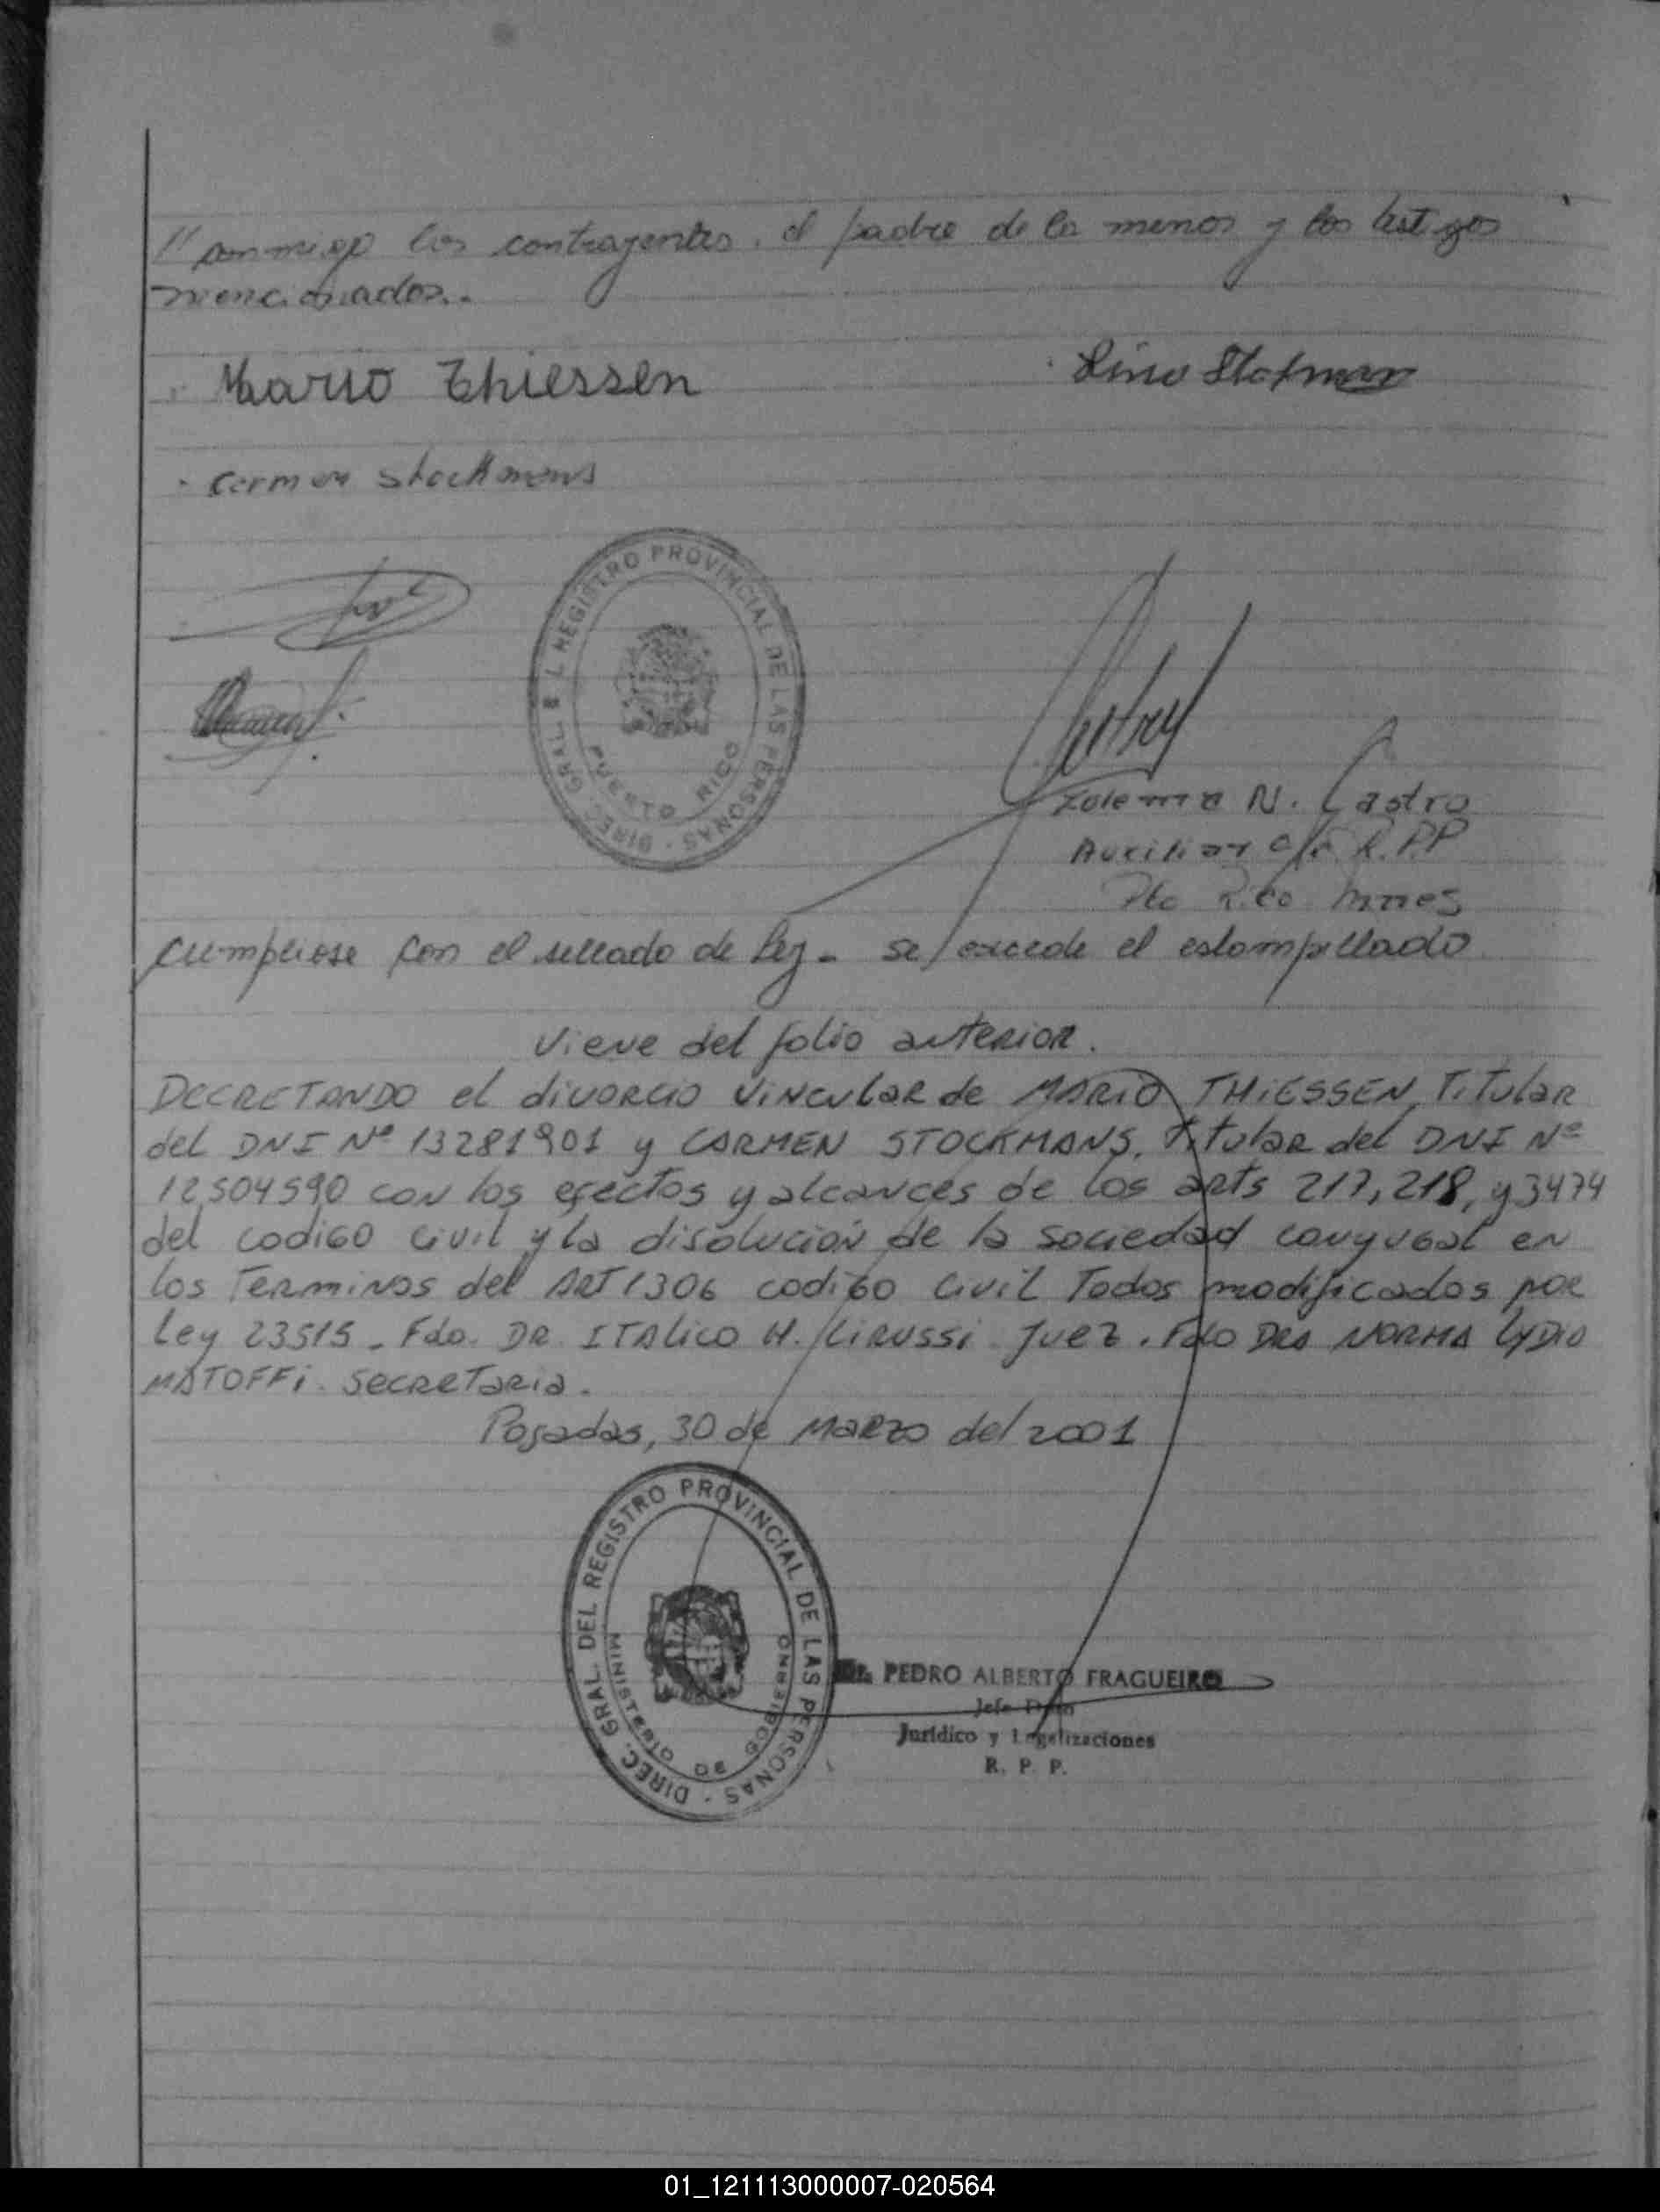 // conmigo los contrayentes, el padre de la menor y los testigos
mencionados.-
Mario Thiessen
Lino Stokman
Carmen Stockmans
DIREC. GRAL. DEL REGISTRO PROVINCIAL DE LAS PERSONAS
PUERTO RICO
Zulema N. Castro
Auxiliar a/c R.P.P
Pto Rico Mnes
Cumpliose con el sellado de Ley - se excede el estampillado
Viene del folio anterior.
DECRETANDO el divorcio vincular de MARIO THIESSEN, Titular
del DNI Nº 13281901 y CARMEN STOCKMANS, titular del DNI Nº
12,504590 con los efectos y alcances de los arts 217, 218, y 3474
del codigo civil y la disolución de la sociedad conyugal en
los Terminos del ART 1306 codigo civil Todos modificados por
Ley 23515 - Fdo. DR. ITALICO H. Juez. Fdo DRA NORMA LYDIA
MATOFFI. Secretaria.
Posadas, 30 de Marzo del 2001
DIREC. GRAL. DEL REGISTRO PROVINCIAL DE LAS PERSONAS
MINISTERIO DE GOBIERNO
Dr. PEDRO ALBERTO FRAGUEIRO
Jefe Dpto
Jurídico y Legalizaciones
R. P. P.
01_121113000007-020564